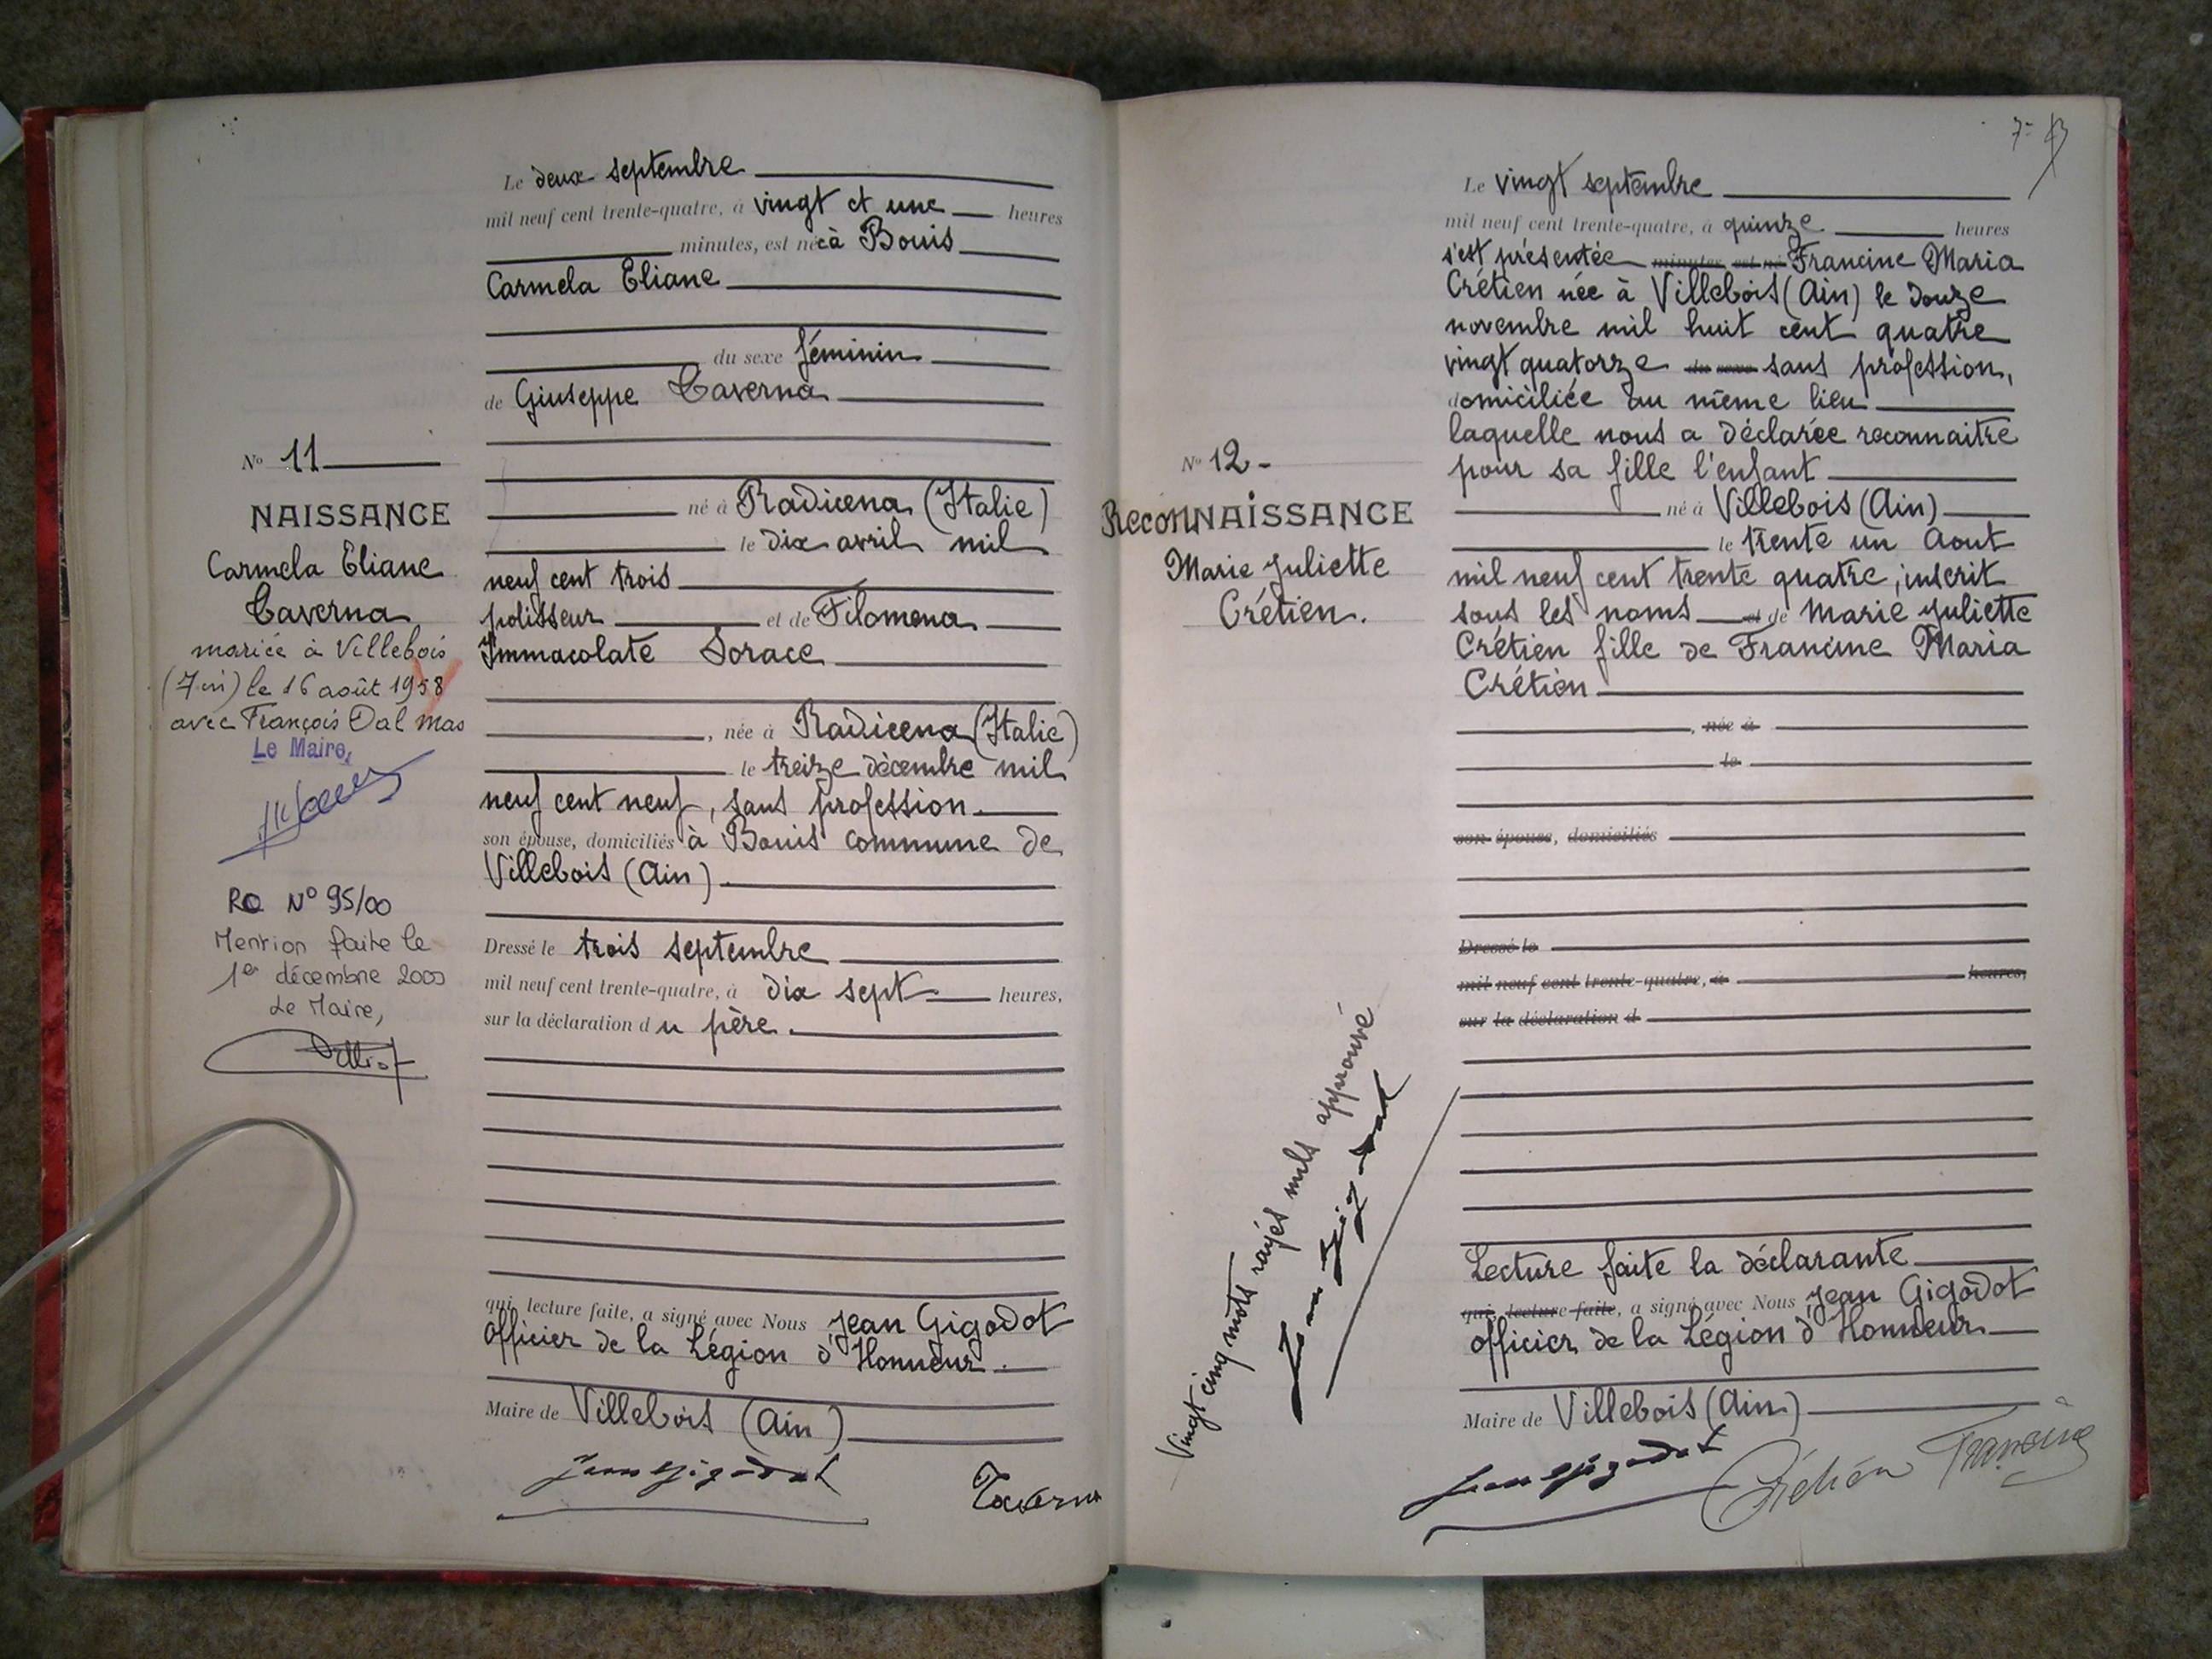 Le deux septembre
mil neuf cent trente-quatre, à vingt et une heures
minutes, est née à Bouis
Carmela Eliane
du sexe féminin
de Giuseppe Taverna
né à Radicena (Italie)
le dix avril mil
neuf cent trois
polisseur et de Filomena
Immacolate Sorace
, née à Radicena (Italie)
le treize décembre mil
neuf cent neuf, sans profession.
son épouse, domiciliés à Bouis commune de
Villebois (Ain).
Dressé le trois septembre
mil neuf cent trente-quatre, à dix sept heures,
sur la déclaration du père.
qui, lecture faite, a signé avec Nous Jean Gigodot
Officier de la Légion d'Honneur.
Maire de Villebois (Ain)
Jean Gigodot
Taverna
No 11
NAISSANCE
Carmela Eliane
Taverna
mariée à Villebois
(Ain) le 16 août 1958
avec François Dal mas
Le Maire,
RC N° 95/00
Mention faite le
1er décembre 2000
Le Maire,
Le vingt septembre
mil neuf cent trente-quatre, à quinze heures
s'est présentée minutes, est né Francine Maria
Crétien née à Villebois (Ain) le douze
novembre mil huit cent quatre
vingt quatorze du sexe sans profession,
domiciliée au même lieu
laquelle nous a déclarée reconnaitre
pour sa fille l'enfant
né à Villebois (Ain)
le trente un Aout
mil neuf cent trente quatre, inscrit
sous les noms et de Marie Juliette
Crétien fille de Francine Maria
Crétien
, née à
le
son épouse, domiciliés
Dressé le
mil neuf cent trente-quatre, à heures,
sur la déclaration d
Lecture faite la déclarante
qui, lecture faite, a signé avec Nous Jean Gigodot
officier de la Légion d'Honneur.
Maire de Villebois (Ain)
Jean Gigodot
Crétien Francine
No 12-
ReconNAISSANCE
Marie Juliette
Crétien.
Vingt cinq mots rayés nuls approuvé
Jean Gigodot